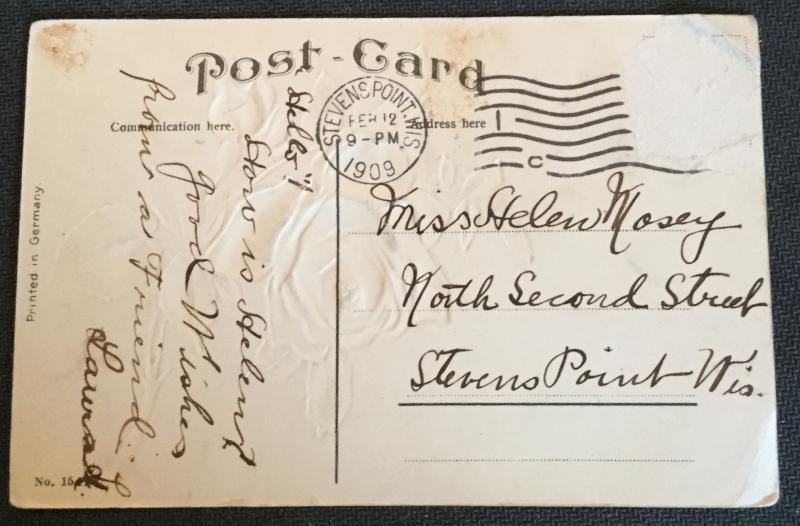 Post-Card
Communication here.
Address here
STEVENS POINT, WIS.
FEB 12
9-PM
1909
C
"Hello"!
How is Helen?
Good Wishes
from a Friend
Miss Helen Mosey
North Second Street
Stevens Point Wis.
Printed in Germany.